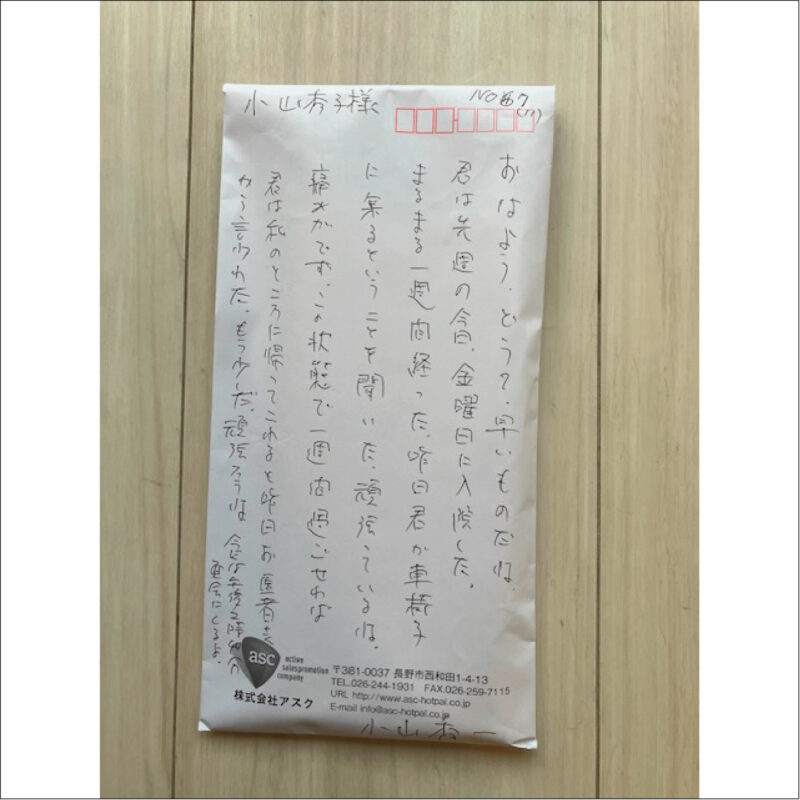 小山有子様
NO 67
(11)
おはよう。どう?早いものだね。
君は先週の今日、金曜日に入院した。
まるまる一週間経った。昨日君が車椅子
に乗るということを聞いた。頑張っているね。
痛みがでず、この状態で一週間過ごせれば
君は私のところに帰ってこれると昨日お医者さ
から言われた。もう少しだ。頑張ろうね。今日は午後2時
面会にくるよ。
asc
active
salespromotion
company
株式会社アスク
〒381-0037 長野市西和田1-4-13
TEL.026-244-1931 FAX.026-259-7115
URL http://www.asc-hotpal.co.jp
E-mail info@asc-hotpal.co.jp
小山有一